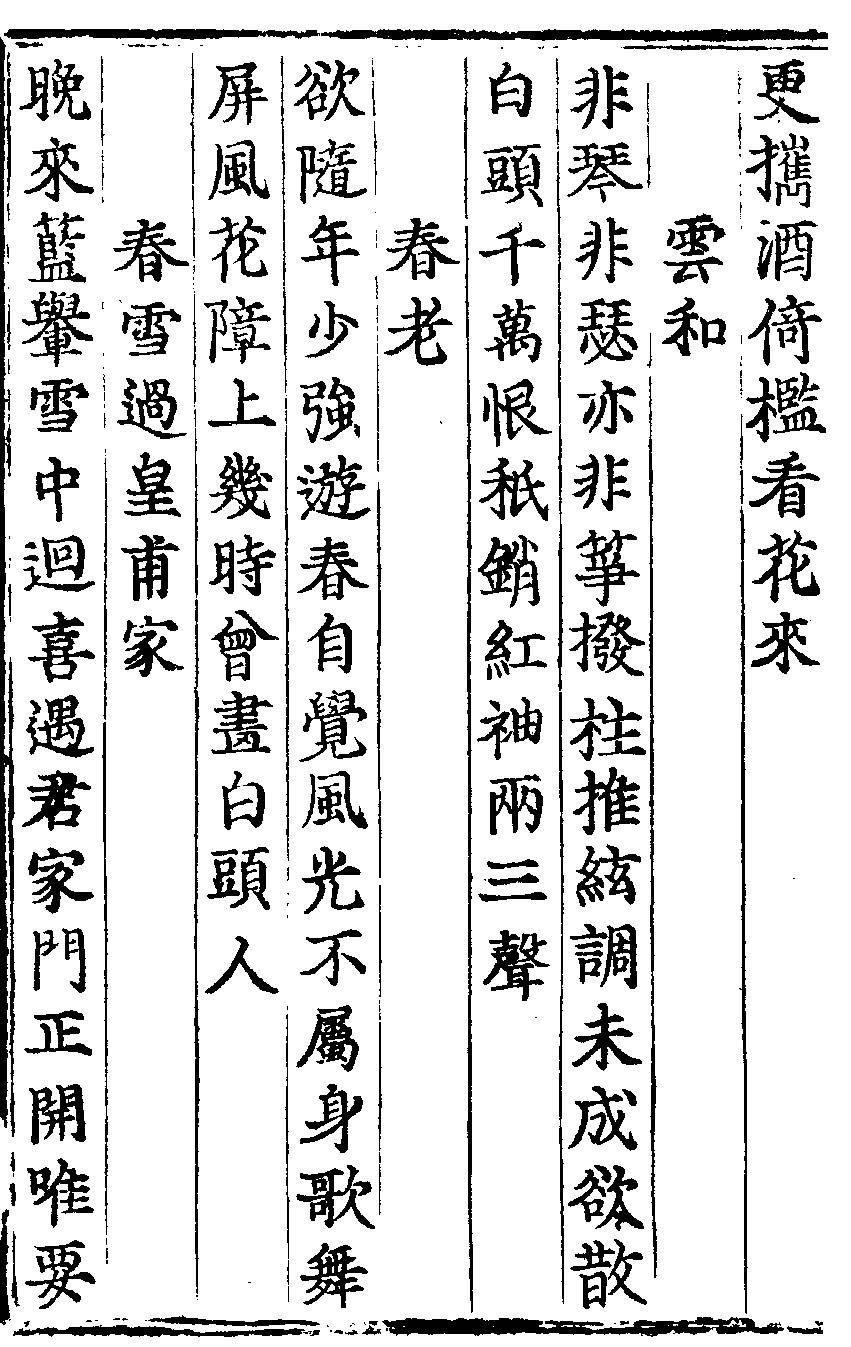 更攜酒倚檻看花來
雲和
非琴非瑟亦非箏撥柱推絃調未成欲散
白頭千萬恨秖銷紅袖兩三聲
春老
欲隨年少強遊春自覺風光不屬身歌舞
屏風花障上幾時曾畫白頭人
春雪過皇甫家
晚來籃轝雪中迴喜遇君家門正開唯要